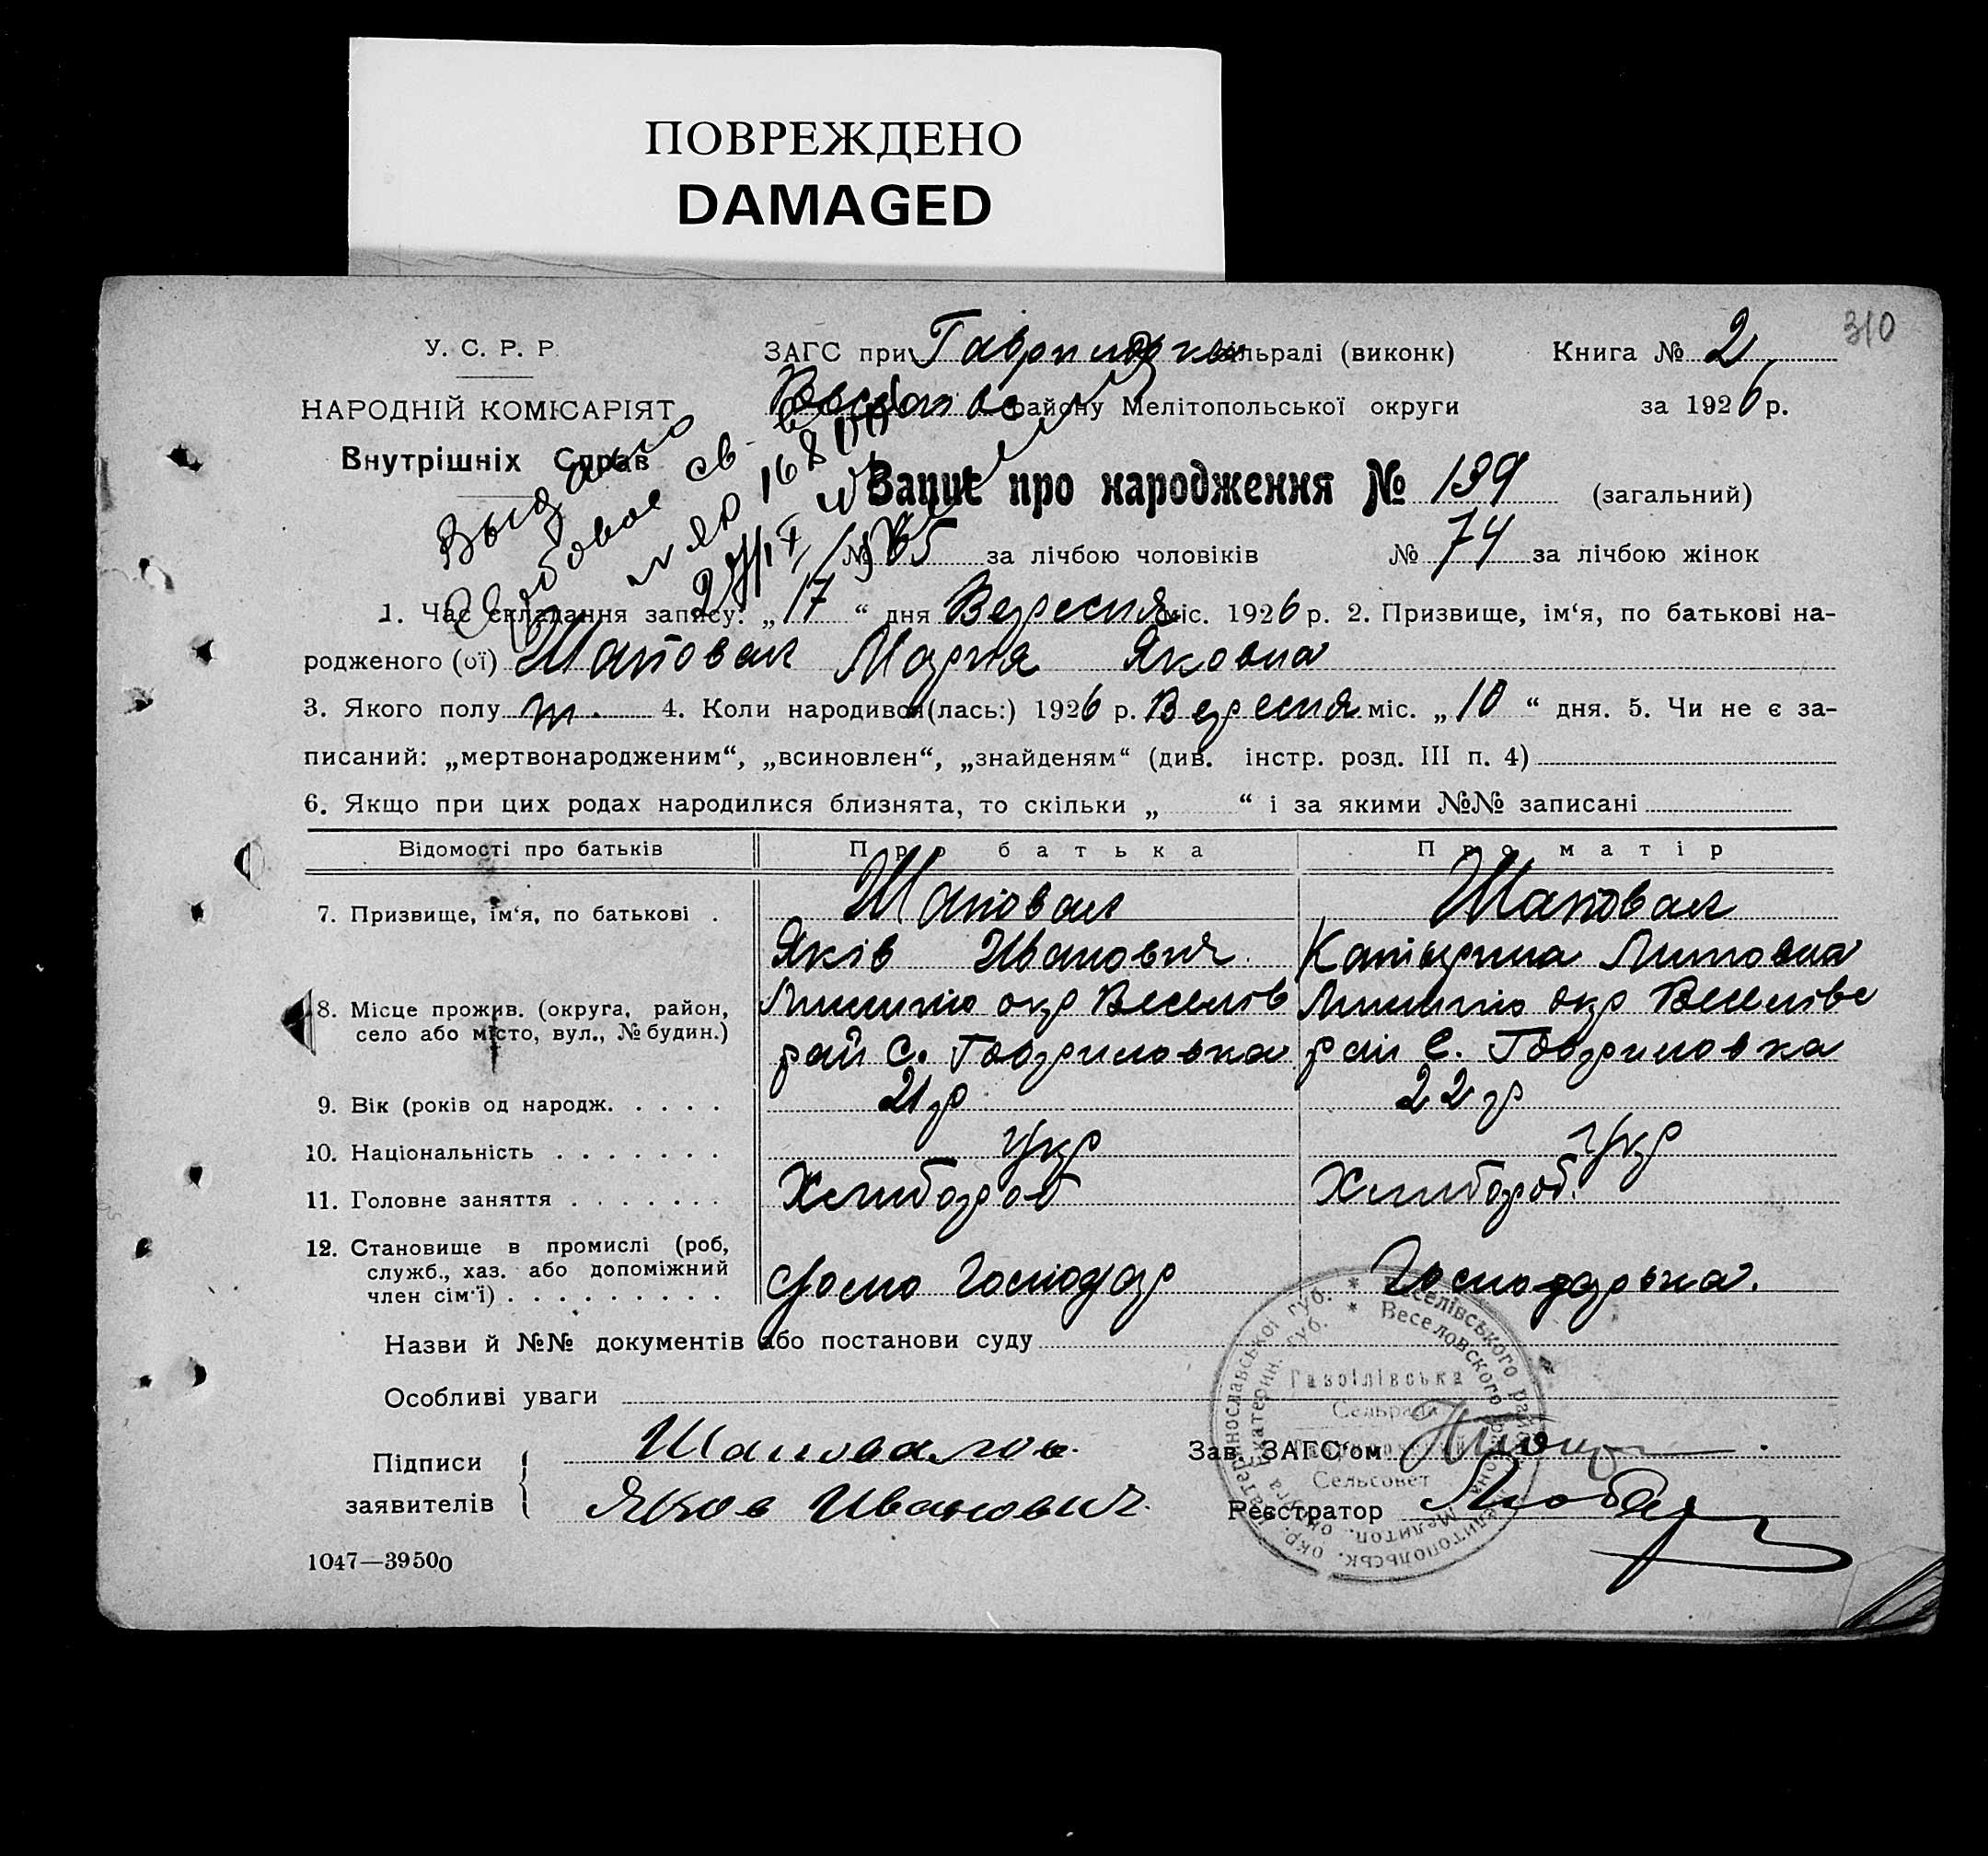 ПОВРЕЖДЕНО
DAMAGED
310
У. С. Р. Р.
НАРОДНІЙ КОМІСАРІЯТ
Внутрішніх Справ
ЗАГС при сільраді (виконк) Книга № 2
району Мелітопольської округи за 1926 р.
Выдано
св-во
Запис про народження № 139 (загальний)
№ 65 за лічбою чоловіків № 74 за лічбою жінок
1. Час складання запису: „17“ дня Вересня міс. 1926 р. 2. Призвище, ім‘я, по батькові на-
родженого (ої) Шаповал Марія Яковна
3. Якого полу ж. 4. Коли народився(лась:) 1926 р. Вересня міс. „10“ дня. 5. Чи не є за-
писаний: „мертвонародженим“, „всиновлен“, „знайденям“ (див. інстр. розд. III п. 4)
6. Якщо при цих родах народилися близнята, то скільки „ “ і за якими №№ записані
Відомості про батьків Про батька Про матір
7. Призвище, ім‘я, по батькові . Шаповал Шаповал
Яків Иванович Катерина
8. Місце прожив. (округа, район, окр Веселів окр Веселівс
село або місто, вул., № будин.) рай с. Гавриловка рай с. Гавриловка
9. Вік (років од народж. . . . . 21 р 22 р
10. Національність . . . . . . . Укр Укр
11. Головне заняття . . . . . . . Хлибороб Хлибороб.
12. Становище в промислі (роб,
служб., хаз. або допоміжний Господар Господарька.
член сім‘ї) . . . . . . . . .
Назви й №№ документів або постанови суду
Особливі уваги
Підписи Шаповалов Зав. ЗАГС‘ом
заявителів Яков Иванович Реєстратор
Гаврілівська
Сельрада
Сельсовет
1047—39500